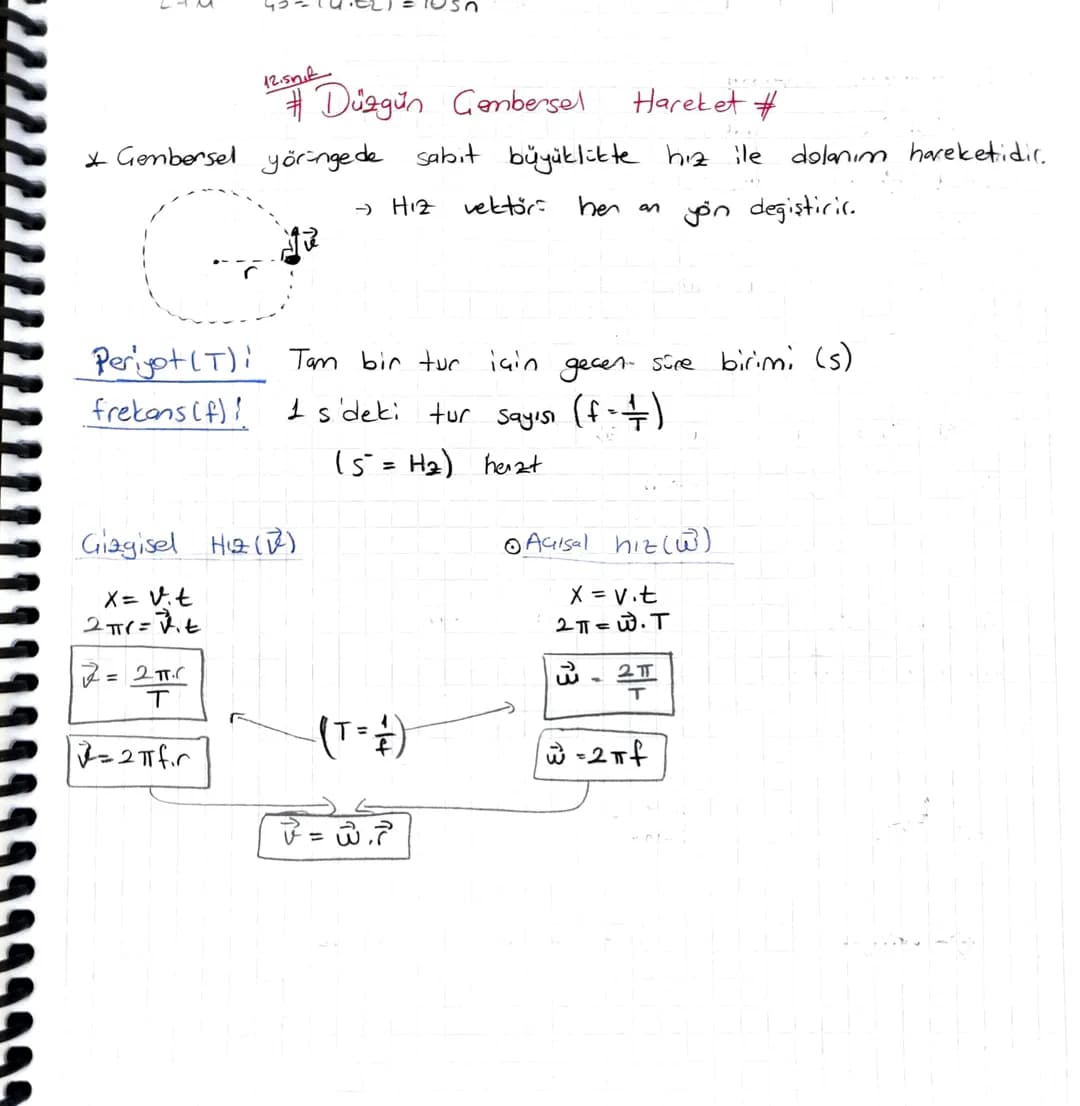 12.sınıf
# Düzgün Çembersel Hareket #
* Çembersel yörüngede sabit büyüklükte hız ile dolanım hareketidir.
→ Hız vektörü her an yön değiştirir.
v⃗
r
Periyot (T): Tam bir tur için geçen süre birimi (s)
frekans (f): 1 s'deki tur sayısı (f = 1/T)
(s⁻ = Hz) hertz
Çizgisel Hız (v⃗)
x = v.t
2πr = v⃗.t
v⃗ = 2π.r / T
v⃗ = 2πf.r
(T = 1/f)
⊙ Açısal hız (w⃗)
x = v.t
2π = w⃗.T
w⃗ = 2π / T
w⃗ = 2πf
v⃗ = w⃗.r⃗